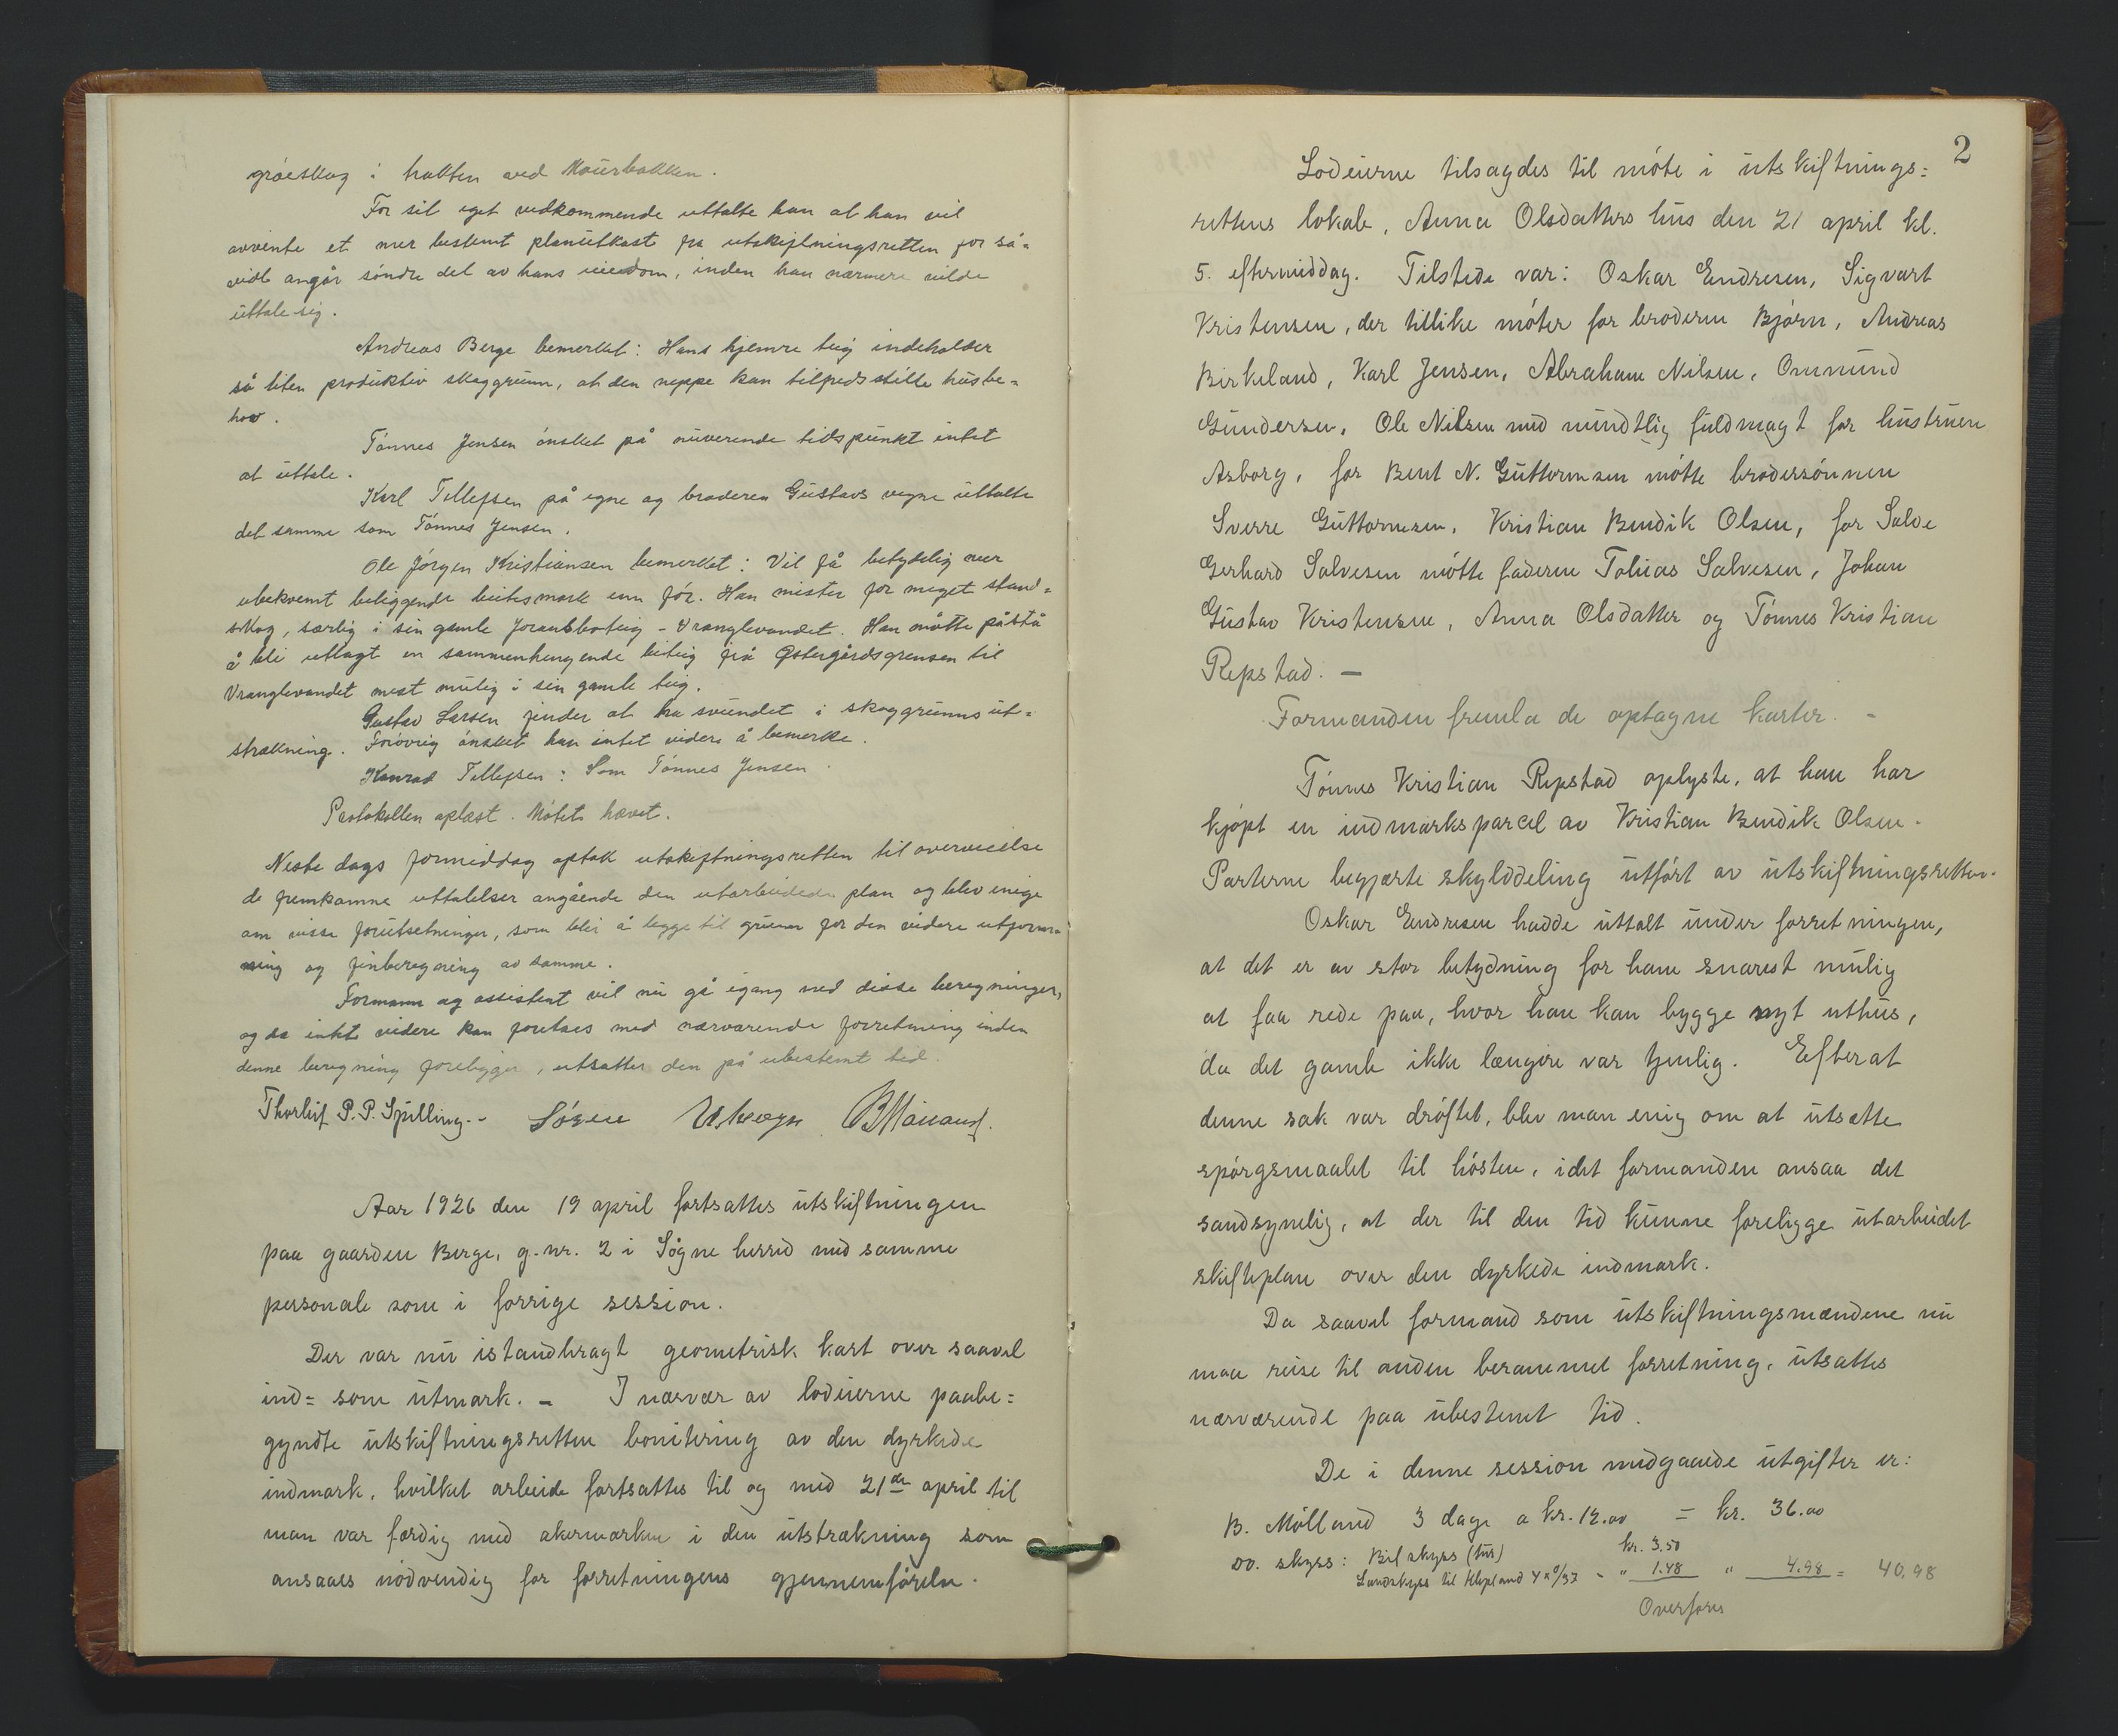 gråeskog i hakken ved Maurbakken.
For sit eget vedkommende uttalte han at han vil
avvente et mer bestemt planutkast fra utskiftningsretten for så-
vidt angår søndre del av hans eiendom, inden han nærmere vilde
uttale sig.
Andreas Berge bemerket: Hans hjemre teig indeholder
så liten produktiv skoggrunn, at den neppe kan tilfredsstille husbe-
hov.
Tønnes Jensen ønsket på nuverende tidspunkt intet
at uttale.
Karl Tellefsen på egne og broderen Gustavs vegne uttalte
det samme som Tønnes Jensen.
Ole Jørgen Kristiansen bemerket: Vil få betydelig mer
ubekvemt beliggende beitesmark enn før. Han mister for meget stand-
skog, særlig i sin gamle teig - Vranglevandet. Han måtte påstå
å bli utlagt en sammenhengende beiteig frå Østergårdsgrensen til
Vranglevandet mest mulig i sin gamle teig.
Gustav Larsen finder at ha svundet i skoggrunns ut-
strækning. Forøvrig ønsket han intet videre å bemerke.
Konrad Tellefsen: Som Tønnes Jensen.
Protokollen oplæst. Møtet hævet.
Neste dags formiddag optok utskiftningsretten til overveielse
de fremkomne uttalelser angående den utarbeidede plan og blev enige
om visse forutsetninger, som blir å legge til grunn for den videre utform-
ning og finberegning av samme.
Formann og assistent vil nu gå igang med disse beregninger,
og da intet videre kan foretaes med nærværende forretning inden
denne beregning foreligger, utsattes den på ubestemt tid.
Thorleif P. P. Spilling.- Søren B Mølland.
Aar 1926 den 19 april fortsattes utskiftningen
paa gaarden Berge, g.nr. 2 i Søgne herred med samme
personale som i forrige session.
Der var nu istandbragt geometrisk kart over saavel
ind= som utmark. - I nærvær av lodeierne paabe=
gyndte utskiftningsretten bonitering av den dyrkede
indmark, hvilket arbeide fortsattes til og med 21de april til
man var færdig med akermarken i den utstrækning som
ansaaes nødvendig for forretningens gjennemførelse.
2
Lodeierne tilsagdes til møte i utskiftnings=
rettens lokale, Anna Olsdatters hus den 21 april kl.
5. eftermiddag. Tilstede var: Oskar Endresen, Sigvart
Kristensen, der tillike møter for broderen Bjørn, Andreas
Birkeland, Karl Jensen, Abraham Nilsen, Ommund
Gundersen, Ole Nilsen med mundtlig fuldmagt for hustruen
Asborg, for Bent N. Guttormsen møtte brodersønnen
Sverre Guttormsen, Kristian Bendik Olsen, for Salve
Gerhard Salvesen møtte faderen Tobias Salvesen, Johan
Gustav Kristensen, Anna Olsdatter og Tønnes Kristian
Repstad. -
Formanden fremla de optagne karter. -
Tønnes Kristian Repstad oplyste, at han har
kjøpt en indmarksparcel av Kristian Bendik Olsen.
Parterne begjærte skylddeling utført av utskiftningsretten.
Oskar Endresen hadde uttalt under forretningen,
at det er av stor betydning for ham snarest mulig
at faa rede paa, hvor han kan bygge nyt uthus,
da det gamle ikke længere var tjenlig. Efterat
denne sak var drøftet, blev man enig om at utsætte
spørgsmaalet til høsten, idet formanden ansaa det
sandsynlig, at der til den tid kunne foreligge utarbeidet
skifteplan over den dyrkede indmark.
Da saavel formand som utskiftningsmændene nu
maa reise til anden berammet forretning, utsattes
nærværende paa ubestemt tid.
De i denne session medgaaede utgifter er:
B. Mølland 3 dage a kr. 12.00 = kr. 36.00
Do. skyss: Bilskyss (tur) kr. 3.50
Landskyss til Klepland 4 x 0/37 - " 1.48 " 4.98 = 40.98
Overføres